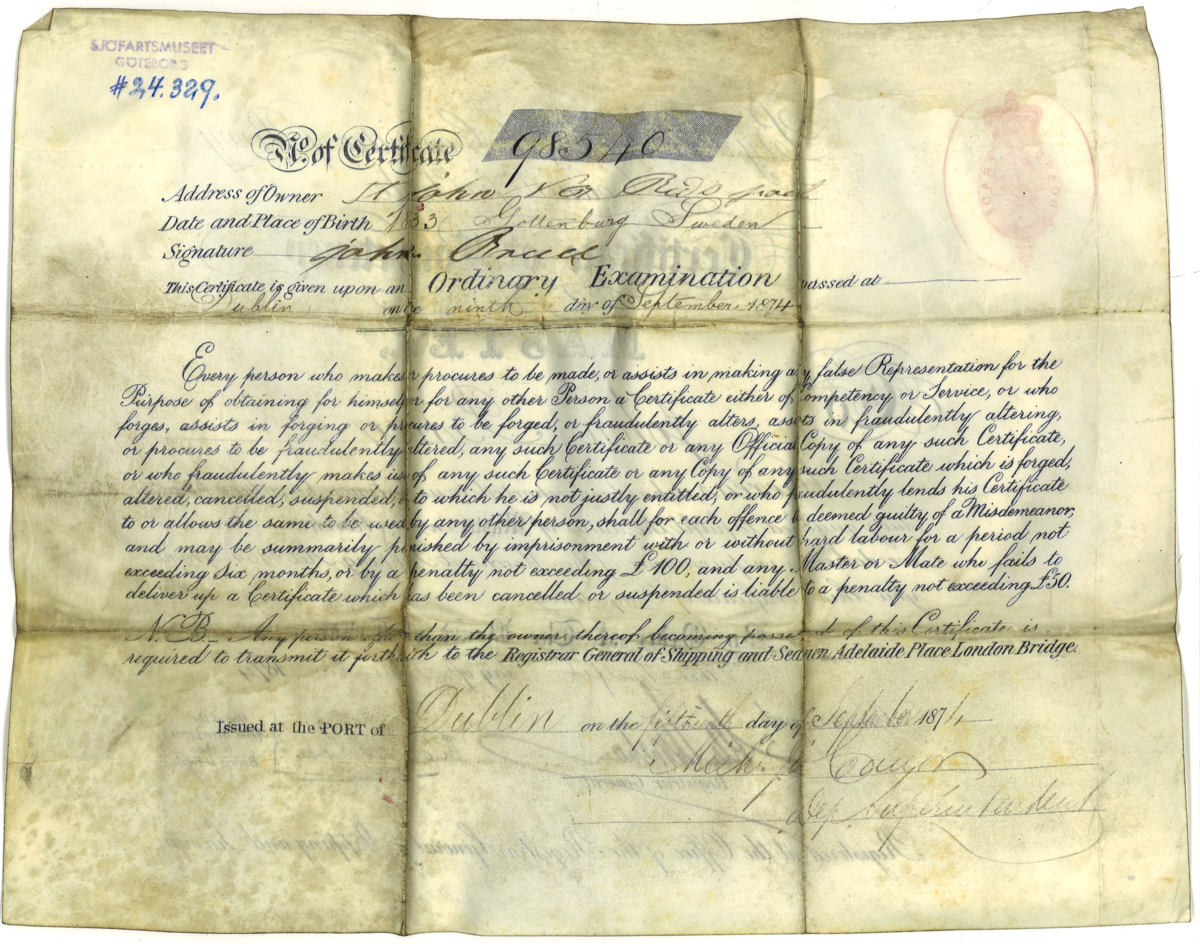 SJÖFARTSMUSEET
GÖTEBORG
#24.329.
No. of Certificate 98540
Address of Owner St John N B
Date and Place of Birth 1833 Gottenburg Sweden
Signature John
This Certificate is given upon an Ordinary Examination passed at
Dublin on the ninth day of September 1874
Every person who makes or procures to be made, or assists in making any false Representation for the
Purpose of obtaining for himself or for any other Person a Certificate either of Competency or Service, or who
forges, assists in forging or procures to be forged, or fraudulently alters, assists in fraudulently altering,
or procures to be fraudulently altered, any such Certificate or any Official Copy of any such Certificate,
or who fraudulently makes use of any such Certificate or any Copy of any such Certificate which is forged,
altered, cancelled, suspended, or to which he is not justly entitled, or who fraudulently lends his Certificate
to or allows the same to be used by any other person, shall for each offence be deemed guilty of a Misdemeanor,
and may be summarily punished by imprisonment with or without hard labour for a period not
exceeding six months, or by a penalty not exceeding £100, and any Master or Mate who fails to
deliver up a Certificate which has been cancelled or suspended is liable to a penalty not exceeding £50.
N.B. Any person other than the owner thereof becoming possessed of this Certificate is
required to transmit it forthwith to the Registrar General of Shipping and Seamen Adelaide Place London Bridge.
Issued at the PORT of Dublin on the fifteenth day of September 1874
Dep Superintendent